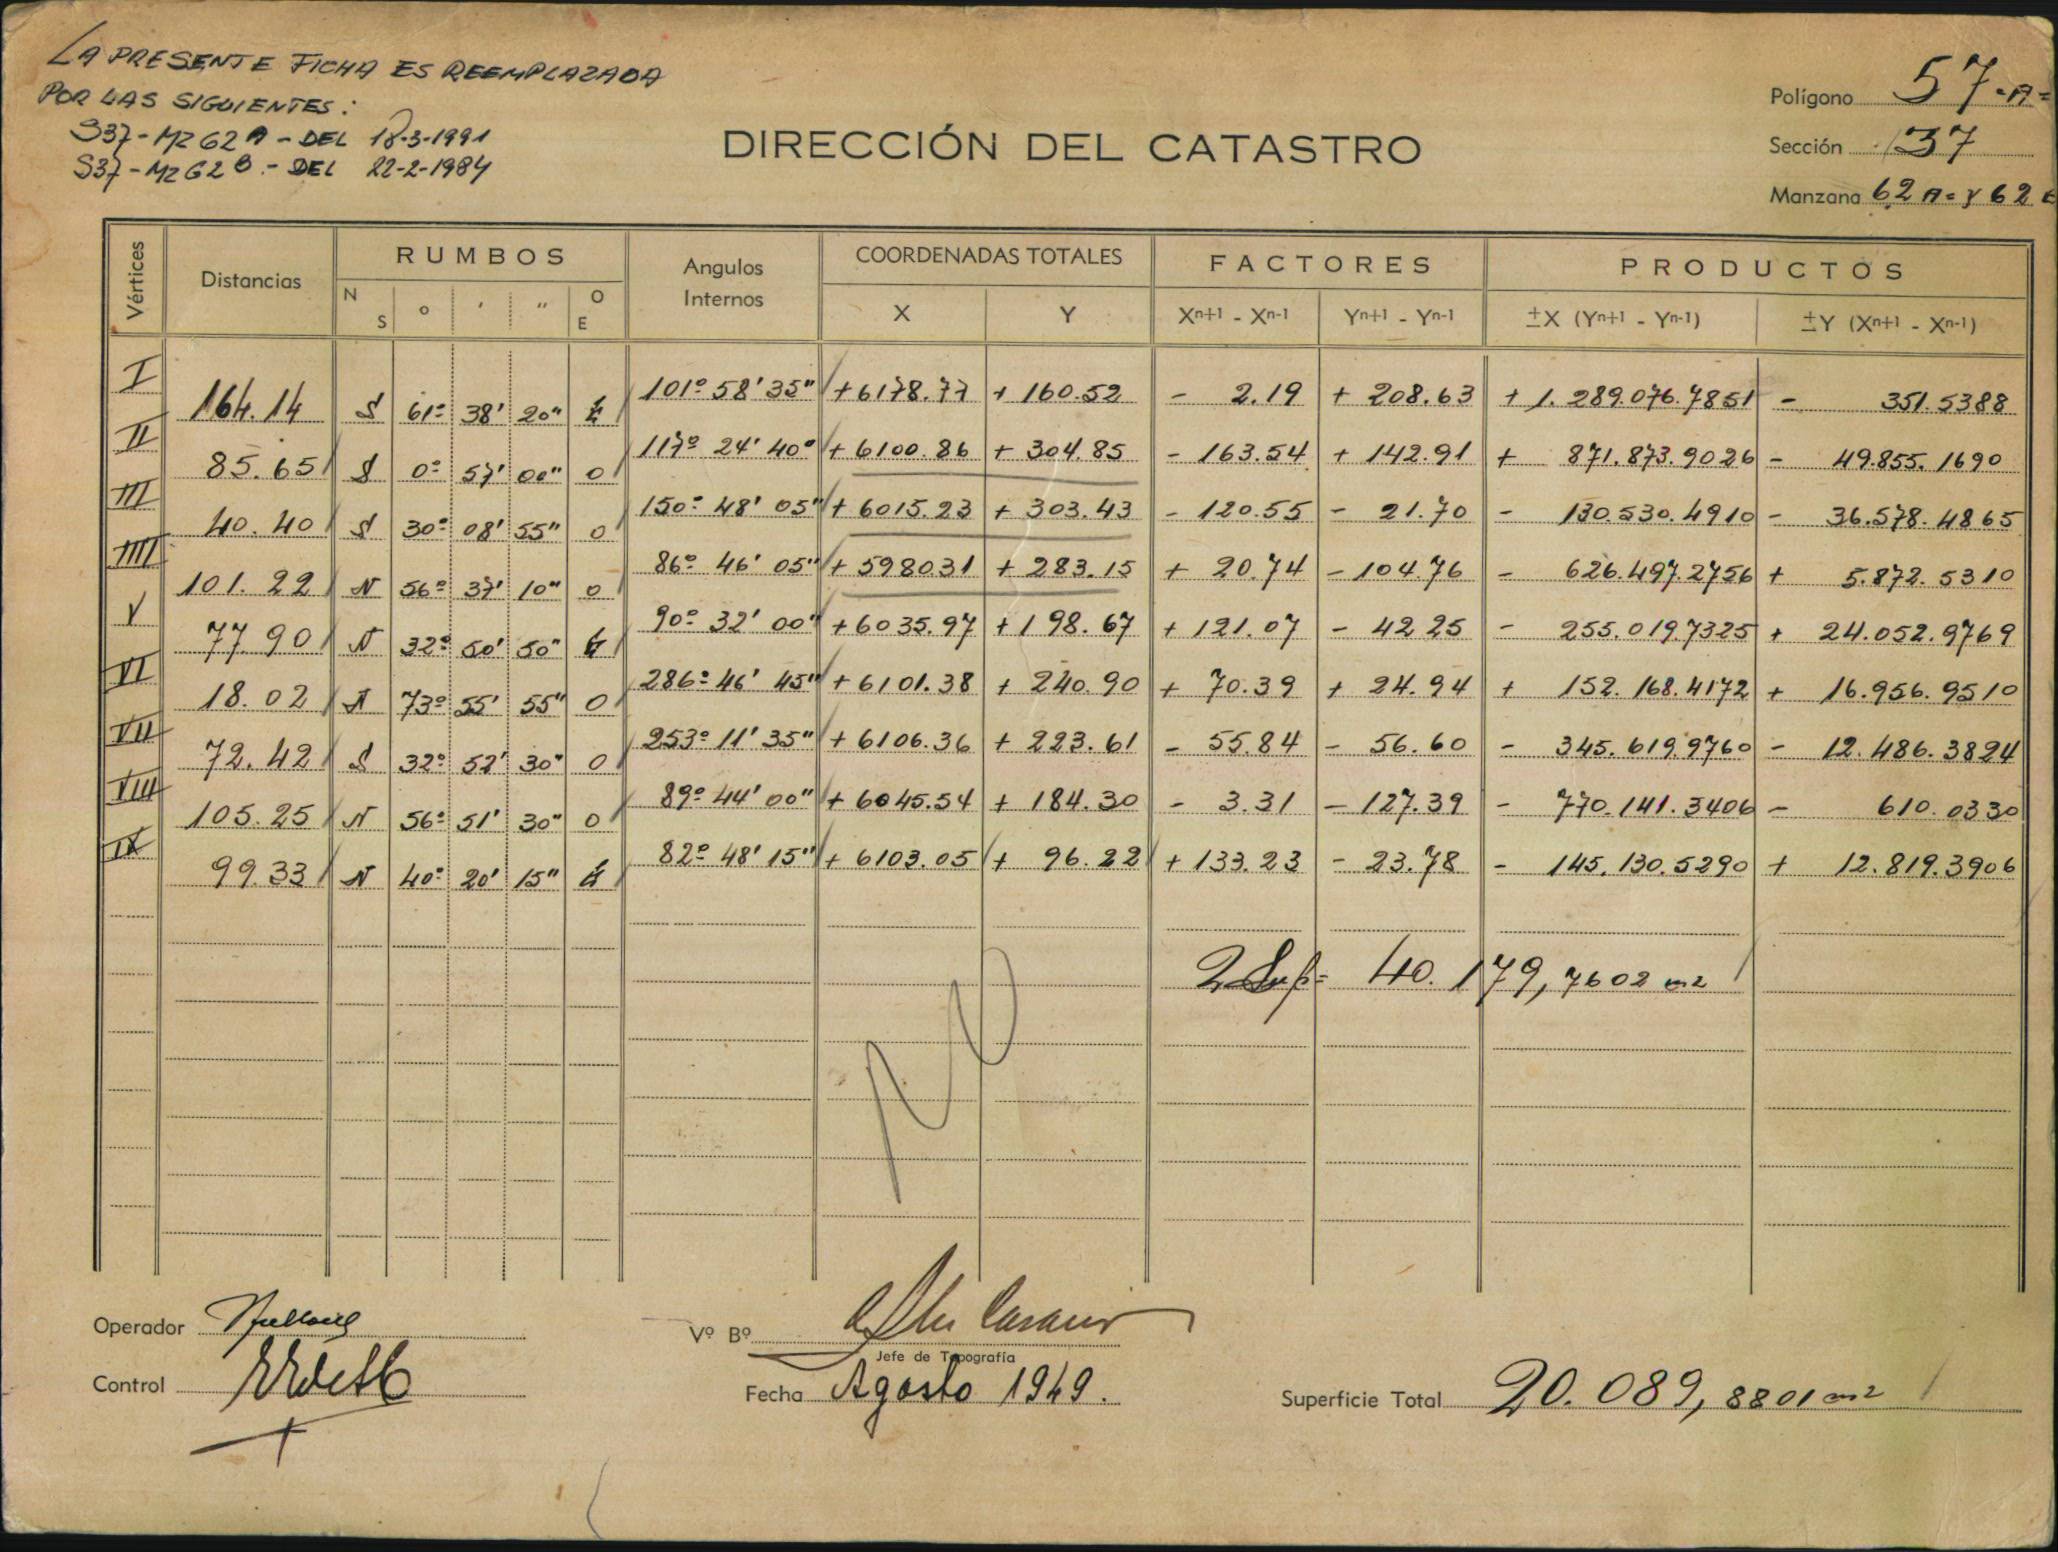 LA PRESENTE FICHA ES REEMPLAZADA
POR LAS SIGUIENTES:
S37-Mz 62 A - DEL 18-3-1991
S37-Mz 62 B.- DEL 22-2-1984
DIRECCIÓN DEL CATASTRO
Polígono 57-A=
Sección 37
Manzana 62 A= y 62
Vértices Distancias RUMBOS Angulos Internos COORDENADAS TOTALES FACTORES PRODUCTOS
N S o ' " O E X Y Xn+1 - Xn-1 Yn+1 - Yn-1 ±X (Yn+1 - Yn-1) ±Y (Xn+1 - Xn-1)
I 164.14 S 61º 38' 20" E 101º 58' 35" +6178.77 + 160.52 - 2.19 + 208.63 + 1.289.076.7851 - 351.5388
II 85.65 S 0º 57' 00" O 117º 24' 40" + 6100.86 + 304.85 - 163.54 + 142.91 + 871.873.9026 - 49.855.1690
III 40.40 S 30º 08' 55" O 150º 48' 05" + 6015.23 + 303.43 - 120.55 - 21.70 - 130.530.4910 - 36.578.4865
IIII 101.22 N 56º 37' 10" O 86º 46' 05" + 5980.31 + 283.15 + 20.74 - 104.76 - 626.497.2756 + 5.872.5310
V 77.90 N 32º 50' 50" E 90º 32' 00" + 6035.97 + 198.67 + 121.07 - 42.25 - 255.019.7325 + 24.052.9769
VI 18.02 N 73º 55' 55" O 286º 46' 45" + 6101.38 + 240.90 + 70.39 + 24.94 + 152.168.4172 + 16.956.9510
VII 72.42 S 32º 52' 30" O 253º 11' 35" + 6106.36 + 223.61 - 55.84 - 56.60 - 345.619.9760 - 12.486.3824
VIII 105.25 N 56º 51' 30" O 89º 44' 00" + 6045.54 + 184.30 - 3.31 - 127.39 - 770.141.3406 - 610.0330
IX 99.33 N 40º 20' 15" E 82º 48' 15" + 6103.05 + 96.22 + 133.23 - 23.78 - 145.130.5290 + 12.819.3906
2 Sup= 40.179,7602 m2
Operador
Vº Bº
Jefe de Topografía
Control
Fecha Agosto 1949.
Superficie Total 20.089,8801 m2